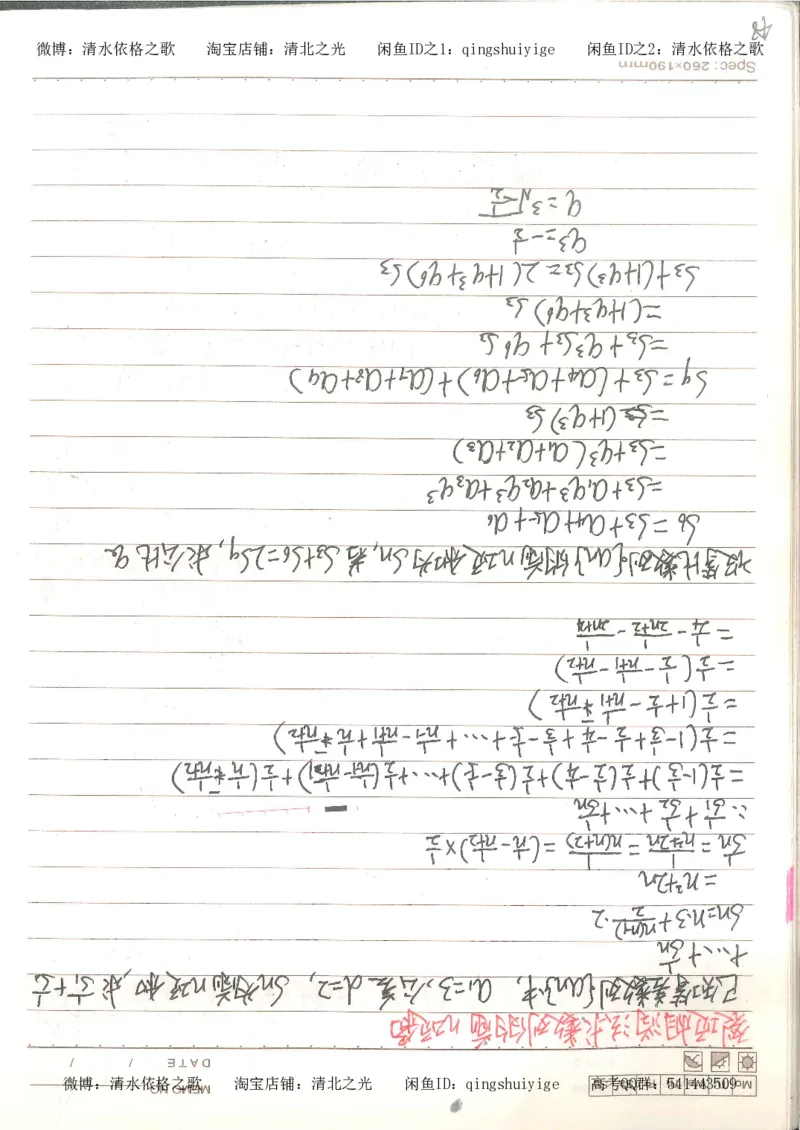 微博：清水依格之歌 淘宝店铺：清北之光 闲鱼ID之1：qingshuiyige 闲鱼ID之2：清水依格之歌
Spec: 260×190mm
MEMO NO.
DATE / /
裂项相消法求数列的前n项和
已知等差数列{an}中, a1=3, 公差d=2, Sn为前n项和, 求1/S1+1/S2
+…+1/Sn
Sn=n·3+n(n-1)/2·2
=n²+2n
1/Sn=1/(n²+2n)=1/(n(n+2))=(1/n-1/(n+2))×1/2
∴1/S1+1/S2+…+1/Sn
=1/2(1-1/3)+1/2(1/2-1/4)+1/2(1/3-1/5)+…+1/2(1/(n-1)-1/(n+1))+1/2(1/n-1/(n+2))
=1/2(1-1/3+1/2-1/4+1/3-1/5+…+1/(n-1)-1/(n+1)+1/n-1/(n+2))
=1/2(1+1/2-1/(n+1)-1/(n+2))
=1/2(3/2-1/(n+1)-1/(n+2))
=3/4-1/(2n+2)-1/(2n+4)
设等比数列{an}的前n项和为Sn, 若S3+S6=2S9, 求公比q
S6=S3+a4+a5+a6
=S3+a1q³+a2q³+a3q³
=S3+q³(a1+a2+a3)
=(1+q³)S3
S9=S3+(a4+a5+a6)+(a7+a8+a9)
=S3+q³S3+q⁶S3
=(1+q³+q⁶)S3
S3+(1+q³)S3=2(1+q³+q⁶)S3
q³=-1/2
q=³√(-1/2)
微博：清水依格之歌 淘宝店铺：清北之光 闲鱼ID：qingshuiyige 高考QQ群：541443509